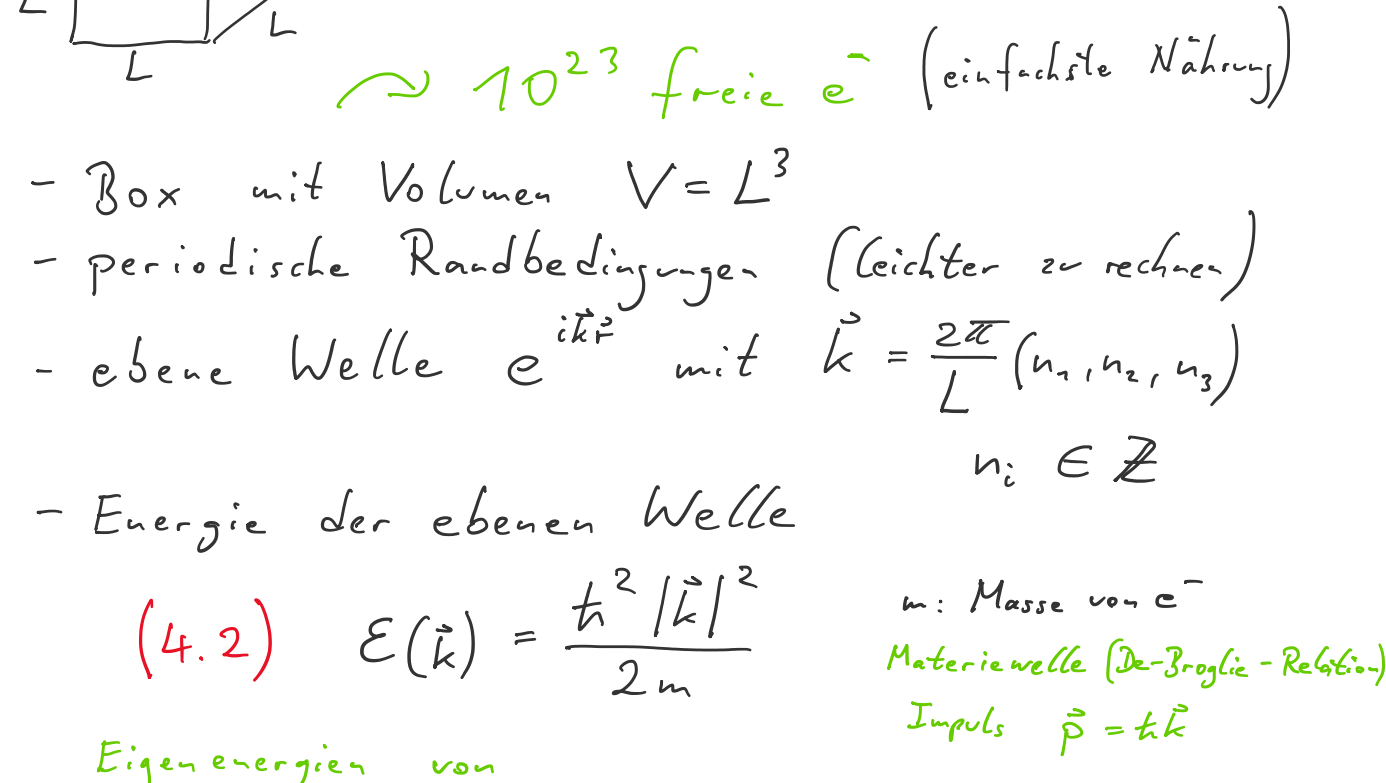 L
L
L
~ 10^23 freie e^- (einfachste Nährung)
- Box mit Volumen V = L^3
- periodische Randbedingungen (leichter zu rechnen)
- ebene Welle e^{i\vec{k}\vec{r}} mit \vec{k} = \frac{2π}{L} (n_1, n_2, n_3)
n_i ∈ ℤ
- Energie der ebenen Welle
(4.2) ε(\vec{k}) = \frac{ħ^2 |\vec{k}|^2}{2m}
m: Masse von e^-
Materiewelle (De-Broglie-Relation)
Impuls \vec{p} = ħ\vec{k}
Eigenenergien von